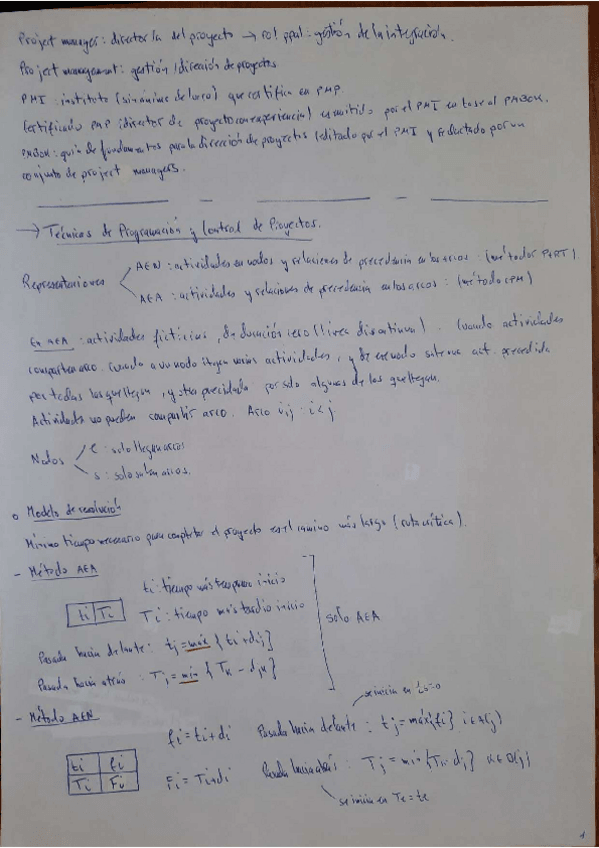 Project manager: director/a del proyecto → rol ppal: gestión de la integración.
Project management: gestión/dirección de proyectos
PMI: instituto (sin ánimo de lucro) que certifica en PMP.
Certificado PMP (director de proyecto con experiencia) emitido por el PMI en base al PMBOK.
PMBOK: guía de fundamentos para la dirección de proyectos (editado por el PMI y redactado por un
conjunto de project managers.
→ Técnicas de Programación y Control de Proyectos.
Representaciones
AEN: actividades en nodos y relaciones de precedencia en los arcos: (método PERT)
AEA: actividades y relaciones de precedencia en los arcos: (método CPM)
En AEA: actividades ficticias, de duración cero (línea discontinua). Cuando actividades
comparten arco. Cuando a un nodo llegan varias actividades, y de ese nodo sale una act. precedida
por todas las que llegan, y otra precedida por solo algunas de las que llegan.
Actividades no pueden compartir arco. Arco i,j: i<j
Nodos
e: solo llegan arcos
s: solo salen arcos.
o Modelo de resolución
Mínimo tiempo necesario para completar el proyecto es el camino más largo (ruta crítica).
- Método AEA
ti: tiempo más temprano inicio
ti Ti
Ti: tiempo más tardío inicio
solo AEA
Pasada hacia delante: tj = máx {ti + dij}
Pasada hacia atrás: Tj = mín {Tk - djk}
se inicia en ts=0
- Método AEN
fi = ti + di Pasada hacia delante: tj = máx {fi} i∈A(j)
ti fi
Ti Fi
Fi = Ti + di Pasada hacia atrás: Tj = mín {Tk - dj} k∈D(j)
se inicia en Te = te
1